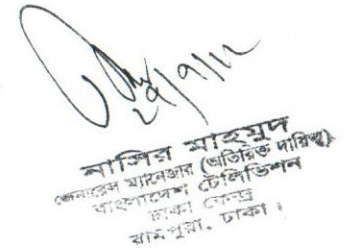 ২৫/৯/১২
নাসির মাহমুদ
জেনারেল ম্যানেজার (অতিরিক্ত দায়িত্ব)
বাংলাদেশ টেলিভিশন
ঢাকা কেন্দ্র
রামপুরা, ঢাকা।